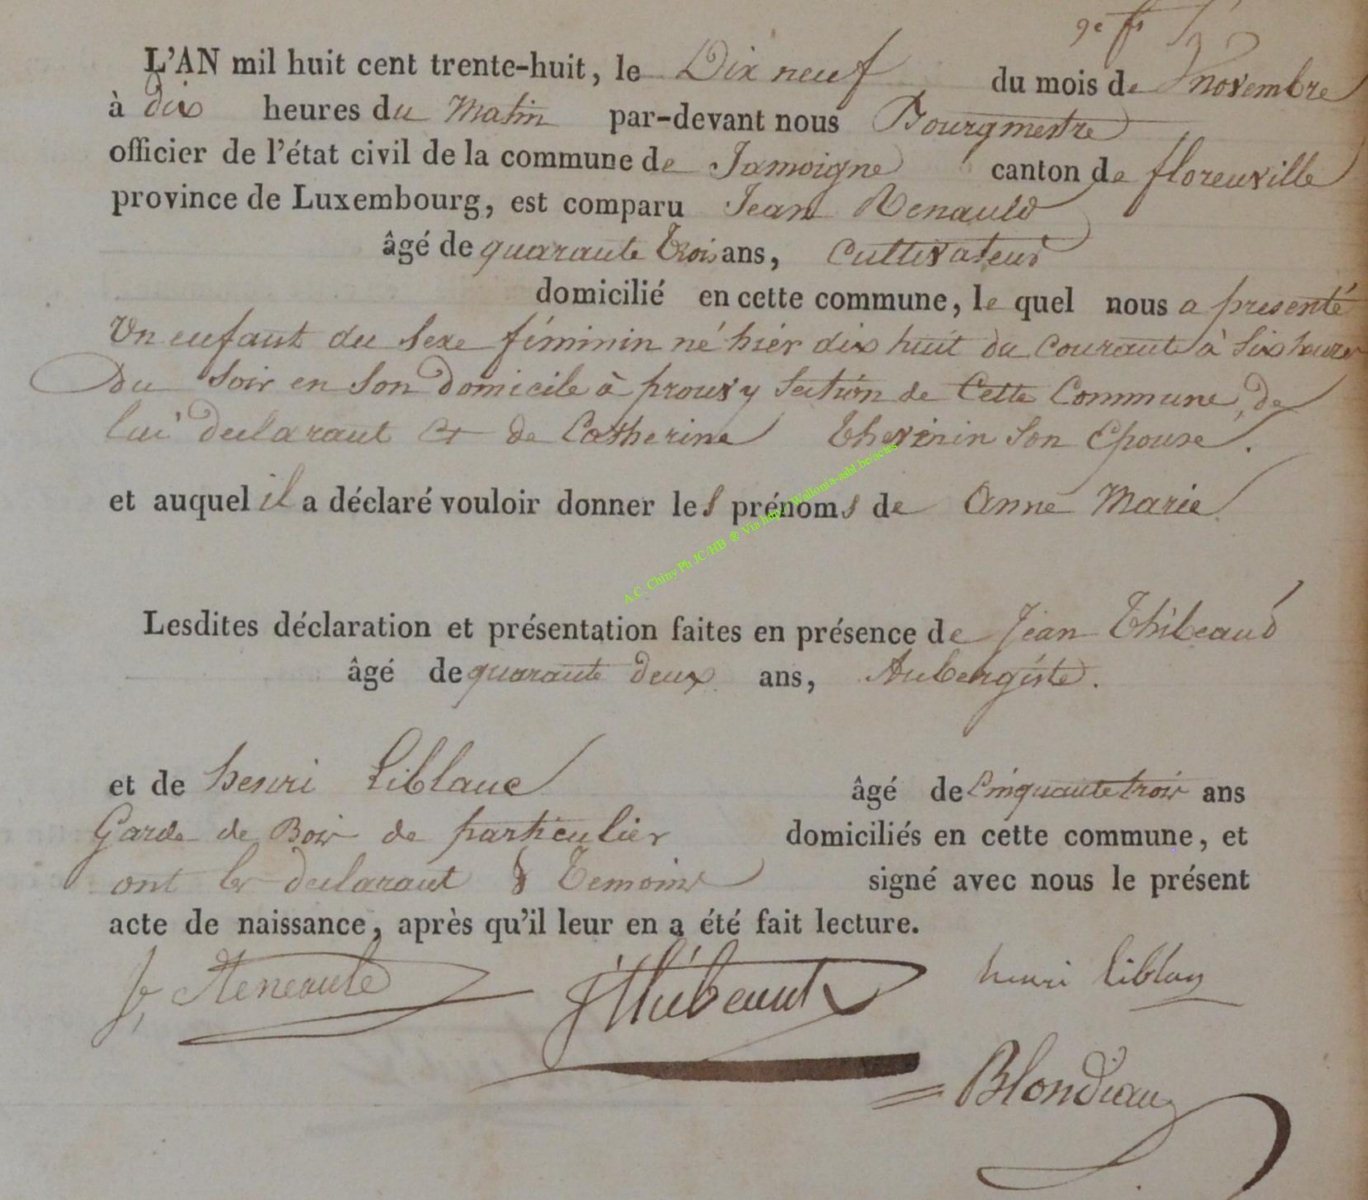 L'AN mil huit cent trente-huit, le Dix neuf du mois de novembre
à dix heures du Matin par-devant nous Bourgmestre
officier de l'état civil de la commune de Jamoigne canton de florenville
province de Luxembourg, est comparu Jean Renauld
âgé de quarante trois ans, Cultivateur
domicilié en cette commune, le quel nous a presenté
Un enfant du sexe féminin né hiér dix huit du courant à six heures
Du soir en son domicile à prouvy Section de Cette Commune, de
lui declarant & de Catherine Thevenin son Epouse.
et auquel il a déclaré vouloir donner les prénoms de Anne Marie
A.C. Chiny Ph JC/HB ®
Lesdites déclaration et présentation faites en présence de Jean Thibeaud
âgé de quarante deux ans, Aubergiste.
et de henri Liblanc âgé de Cinquante trois ans
Garde de Bois de particulier domiciliés en cette commune, et
ont les declarant & Temoins signé avec nous le présent
acte de naissance, après qu'il leur en a été fait lecture.
J, Reneauld JThibeaut henri liblan
Blondiau